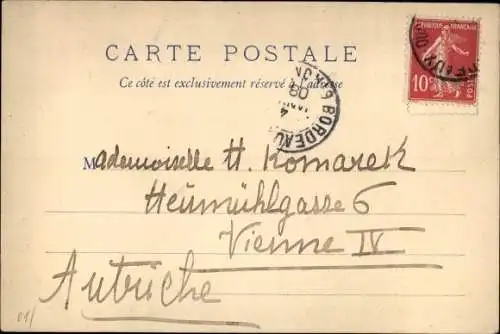 CARTE POSTALE
Ce côté est exclusivement réservé à l'adresse
RÉPUBLIQUE FRANÇAISE
10c
POSTES
BORDEAUX
4
09
Mademoiselle H. Komarek
Heumühlgasse 6
Vienne IV
Autriche